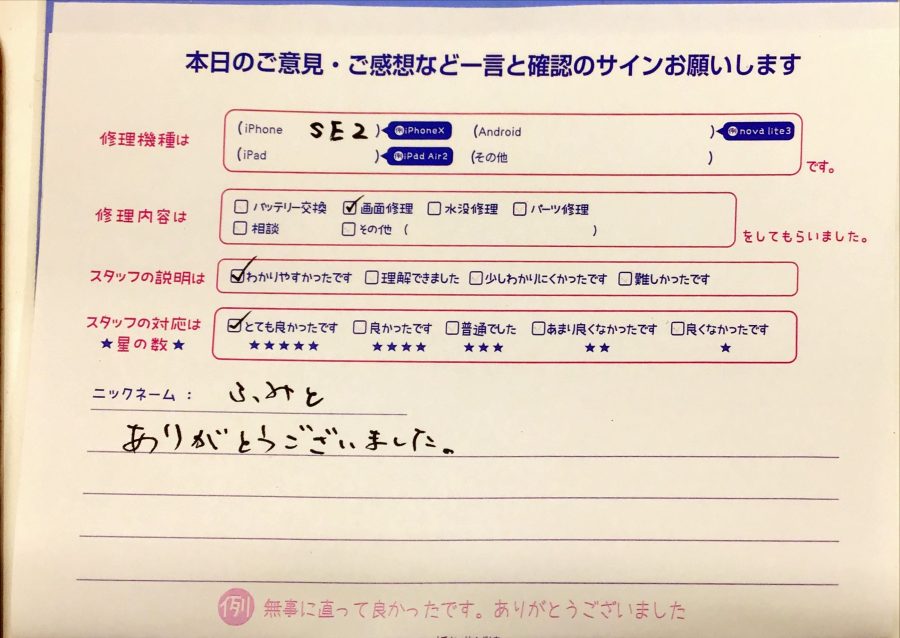 本日のご意見・ご感想など一言と確認のサインお願いします
修理機種は
(iPhone SE2 ) 例iPhoneX (Android ) 例nova lite3
(iPad ) 例iPad Air2 (その他 )
です。
修理内容は
バッテリー交換 画面修理 水没修理 パーツ修理
相談 その他 ( )
をしてもらいました。
スタッフの説明は
わかりやすかったです 理解できました 少しわかりにくかったです 難しかったです
スタッフの対応は
★星の数★
とても良かったです 良かったです 普通でした あまり良くなかったです 良くなかったです
★★★★★ ★★★★ ★★★ ★★ ★
ニックネーム： ふみと
ありがとうございました。
例 無事に直って良かったです。ありがとうございました